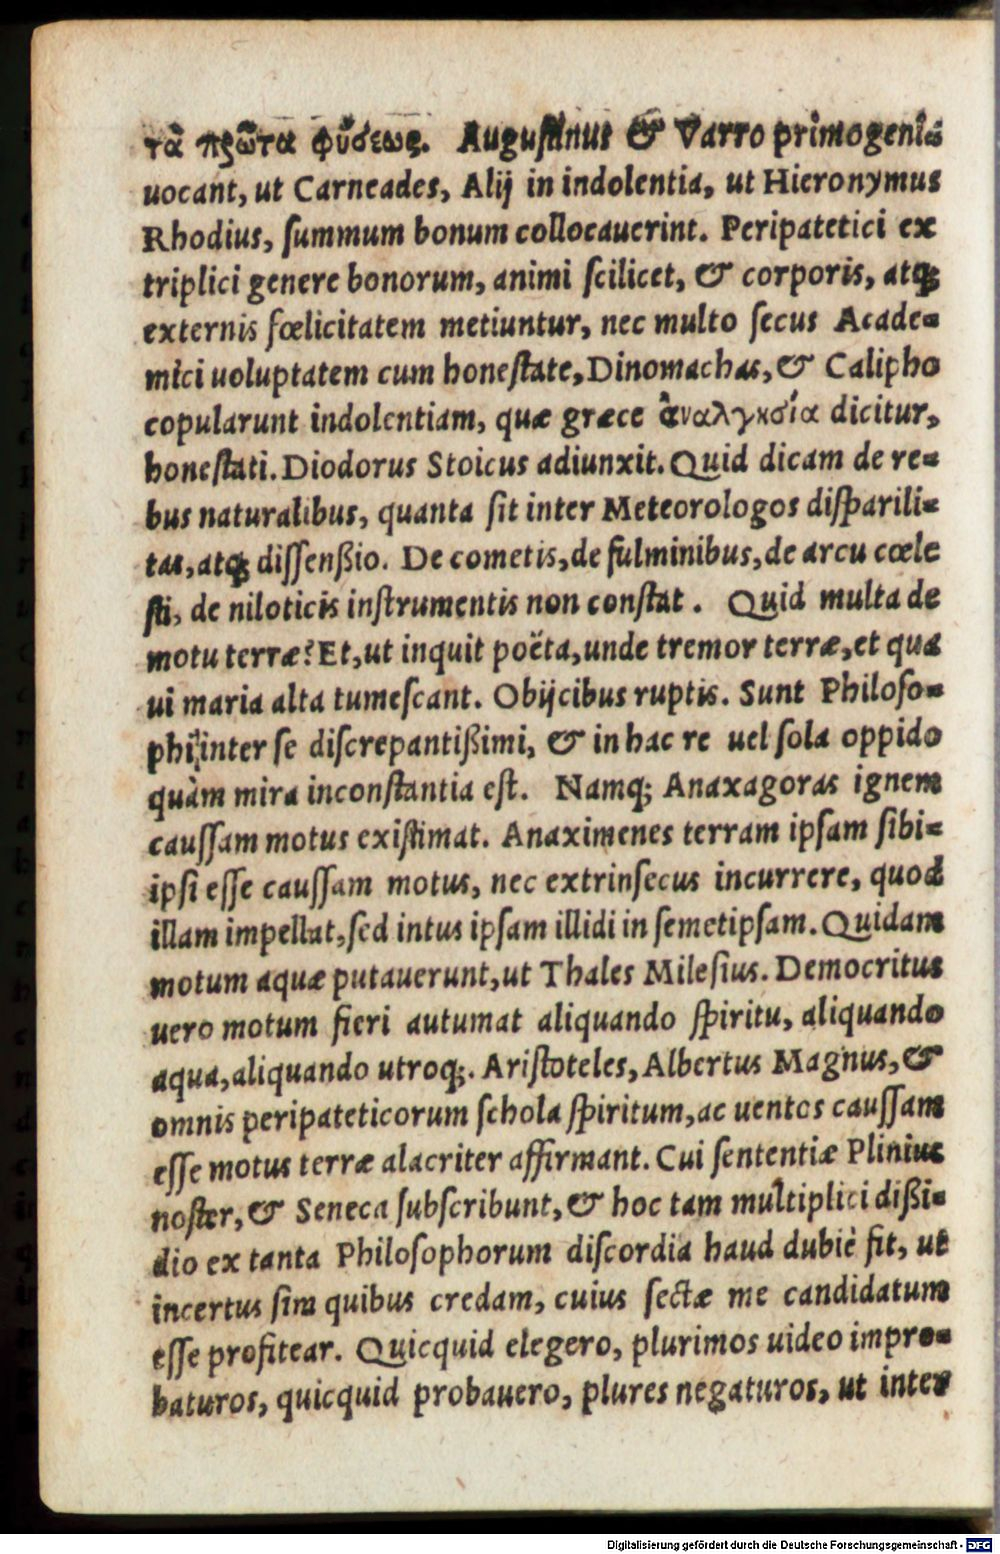 τὰ πρῶτα φύσεως. Augustinus & Varro primogenia
uocant, ut Carneades, Alij in indolentia, ut Hieronymus
Rhodius, summum bonum collocauerint. Peripatetici ex
triplici genere bonorum, animi scilicet, & corporis, atq;
externis fœlicitatem metiuntur, nec multo secus Acade-
mici uoluptatem cum honestate, Dinomachas, & Calipho
copularunt indolentiam, quæ græce ἀναλγησία dicitur,
honestati. Diodorus Stoicus adiunxit. Quid dicam de re-
bus naturalibus, quanta sit inter Meteorologos disparili-
tas, atq; dissenßio. De cometis, de fulminibus, de arcu cœle
sti, de niloticis instrumentis non constat. Quid multa de
motu terræ? Et, ut inquit poëta, unde tremor terræ, et qua
ui maria alta tumescant. Obijcibus ruptis. Sunt Philoso-
phi inter se discrepantißimi, & in hac re uel sola oppido
quàm mira inconstantia est. Namq; Anaxagoras ignem
caussam motus existimat. Anaximenes terram ipsam sibi-
ipsi esse caussam motus, nec extrinsecus incurrere, quod
illam impellat, sed intus ipsam illidi in semetipsam. Quidam
motum aquæ putauerunt, ut Thales Milesius. Democritus
uero motum fieri autumat aliquando spiritu, aliquando
aqua, aliquando utroq;. Aristoteles, Albertus Magnus, &
omnis peripateticorum schola spiritum, ac uentos caussam
esse motus terræ alacriter affirmant. Cui sententiæ Plinius
noster, & Seneca subscribunt, & hoc tam multiplici dißi-
dio ex tanta Philosophorum discordia haud dubiè fit, ut
incertus sim quibus credam, cuius sectæ me candidatum
esse profitear. Quicquid elegero, plurimos uideo impro-
baturos, quicquid probauero, plures negaturos, ut inter
Digitalisierung gefördert durch die Deutsche Forschungsgemeinschaft - DFG